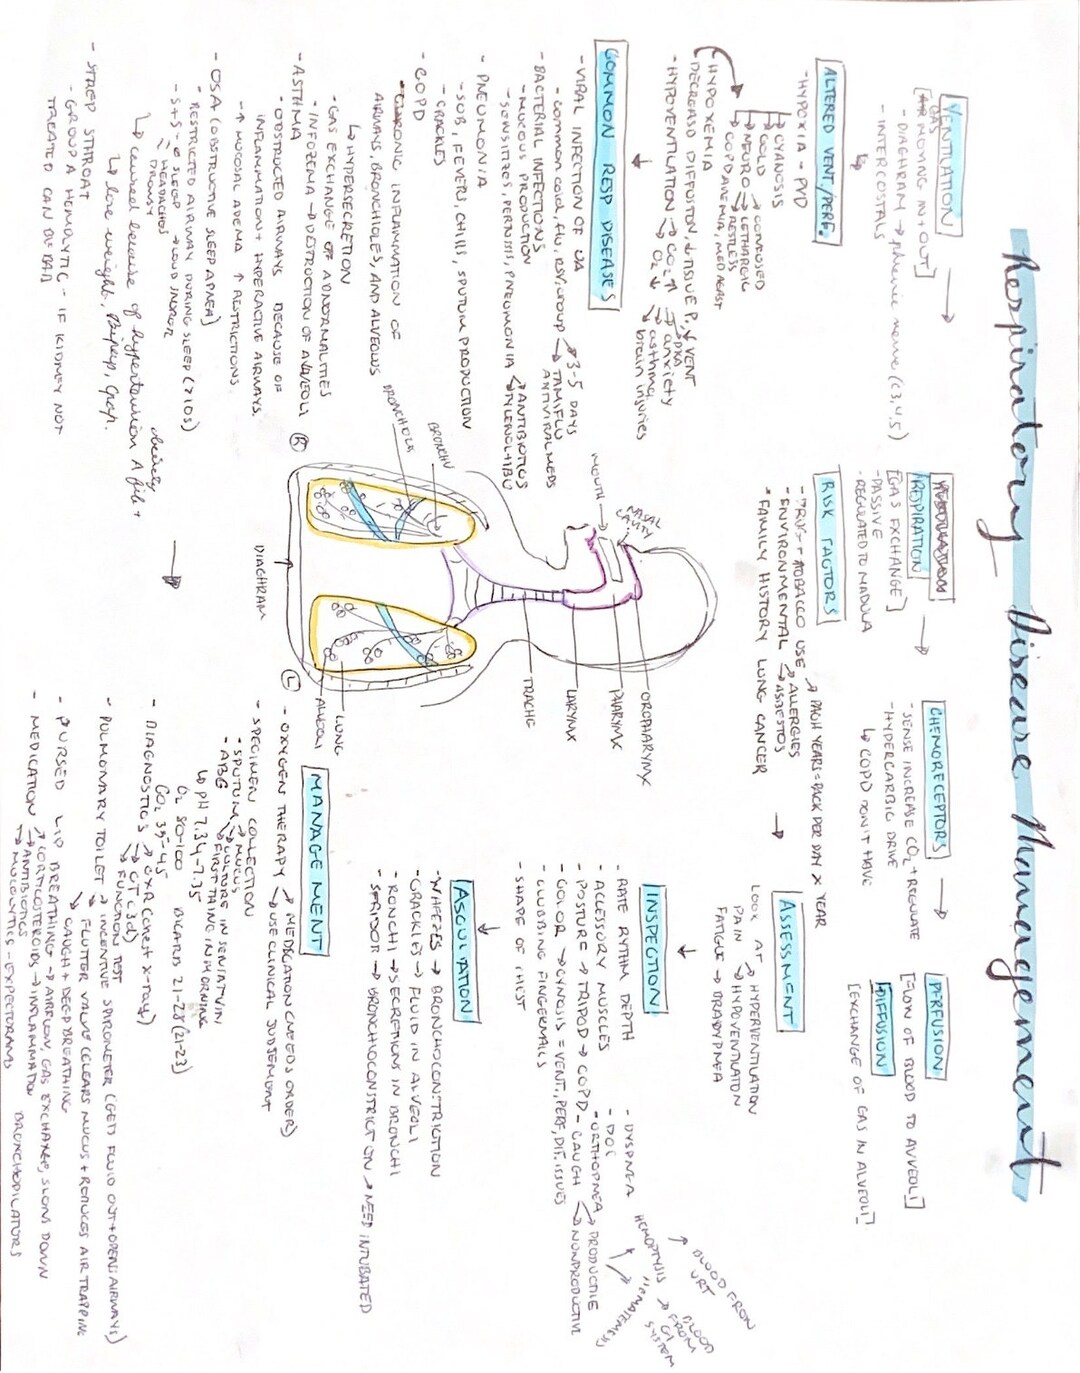 Respiratory Disease Management
VENTILATION
[AIR MOVING IN + OUT]
GAS
- DIAGHRAM → phrenic nerve (C3,4,5)
- INTERCOSTALS
RESPIRATION
[GAS EXCHANGE]
- PASSIVE
- REGULATED TO MADULA
CHEMORECEPTORS
- SENSE INCREASE CO2 + REGULATE
- HYPERCARBIC DRIVE
↳ COPD DON'T HAVE
PERFUSION
[FLOW OF BLOOD TO AVVEOLI]
DIFFUSION
[EXCHANGE OF GAS IN ALVEOLI]
ALTERED VENT/PERF.
- HYPOXIA - PVD
→ CYANOSIS
→ COLD
→ NEURO → CONFUSED
→ LETHARGIC
→ RESTLESS
→ COPD ANEMIA, MED AGAST
HYPOXEMIA
DECREASD DIFFUSION, ↓ TISSUE P, ↓ VENT
- HYPOVENTILATION → CO2 ↑ → DKA
→ anxiety
O2 ↓ → asthma
brain injuries
RISK FACTORS
- DRUG + TOBACCO USE → PACK YEARS = PACK PER DAY X YEAR
- ENVIRONMENTAL → ALLERGIES
→ ASBESTOS
- FAMILY HISTORY LUNG CANCER
ASSESSMENT
LOOK AT → HYPERVENTILATION
PAIN → HYPOVENTILATON
FATIGUE → BRADYPNEA
COMMON RESP DISEASES
- VIRAL INFECTION OF UA
- common cold, flu, RSV, croup → 3-5 DAYS
→ TAMIFLU
ANTIVIRAL MEDS
- BACTERIAL INFECTIONS
- MUCOUS PRODUCTION
- SINUSITES, PERTUSIS, PNEUMONIA → ANTIBIOTICS
→ TYLENOL + IBU
- PNEUMONIA
- SOB, FEVER, CHILLS, SPUTUM PRODUCTION
- CRACKLES
- COPD
- CHRONIC INFLAMMATION OF
AIRWAYS, BRONCHIOLES, AND ALVEOUS
↳ HYPERSECRETION
- GAS EXCHANGE OF ABNORMALITIES
- INFOZEMA → DESTRUCTION OF ALVEOLI
- ASTHMA
- OBSTRUCTED AIRWAYS BECAUSE OF
INFLAMMATION + HYPERACTIVE AIRWAYS.
- ↑ MUCOSAL ADEMA ↑ RESTRICTIONS
- OSA (OBSTRUCTIVE SLEEP APNEA)
- RESTRICTED AIRWAY DURING SLEEP (>10S)
- S+S - ∅ SLEEP → LOUD SNOROR
→ HEADACHES
DROWSY
↳ caused because of hypertension A fib +
obesity
↳ lose weight, Bipap, Cpap.
- STREP STHROAT
- GROUP A HEMOLYTIC - IF KIDNEY NOT
TREATED CAN BE BAD
MOUTH
NASAL CAVITY
BRONCHU
BRONCHOLA
OROPHARYNX
PHARYNX
LARYNX
TRACHE
LUNG
ALVEOLI
DIAGHRAM
R
L
INSPECTION
- RATE RYTHM DEPTH
- ACCESSORY MUSCLES
- POSTURE → TRIPOD → COPD
- COLOR → CYNOSIS = VENT., PERF, DIF. ISSUES
- CLUBBING FINGERNAILS
- SHAPE OF CHEST
- DYSPNEA
- DOE
- ORTHOPNEA
- CAUGH → PRODUCTIE
→ NONPRODUCTIVE
HEMOPTYSIS → BLOOD FROM URT
→ BLOOD FROM GI SYSTEM
ASCULTATION
- WHEEZES → BRONCHOCONSTRICTION
- CRACKLES → FLUID IN ALVEOLI
- RONCHI → SECRETIONS IN BRONCHI
- STRIDOR → BRONCHOCONSTRICTION → NEED INTUBATED
MANAGEMENT
- OXYGEN THERAPY → MEDICATION (NEEDS ORDER)
→ USE CLINICAL JUDJEMENT
- SPECIMEN COLLECTION
- SPUTUM → MUCUS
→ CULTURE IN SENITATVIN
→ FIRST THING IN MORNING
- ABG
↳ PH 7.34-7.35
O2 80-100 BICARB 21-28 (21-23)
CO2 35-45
- DIAGNOSTICS → CXR (chest x-ray)
→ CT (3d)
→ FUNCTION TEST
- PULMONARY TOILET → INCENTIVE SPIROMETER (GETS FLUID OUT + OPENS AIRWAYS)
→ FLUTTER VALVE (CLEARS MUCUS + REDUCES AIR TRAPPING
→ CAUGH + DEEP BREATHING
- PURSED LIP BREATHING → AIRFLOW, GAS EXCHANGE, SLOWS DOWN
- MEDICATION → CORTICOSTEROIDS → INFLAMMATION BRONCHODILATORS
→ ANTIBIOTICS
→ MUCOLYTICS - EXPECTORANS